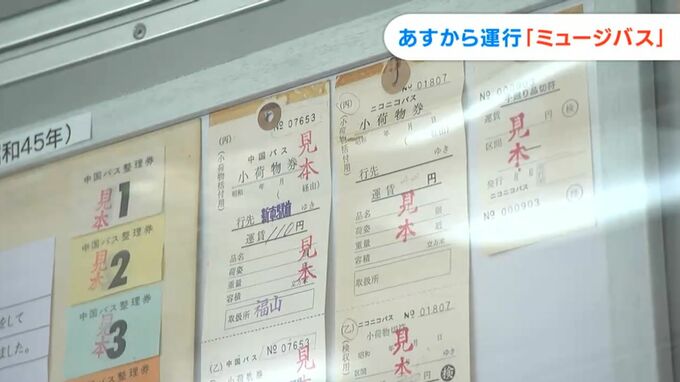 あすから運行「ミュージバス」
和45年)
中国バス整理券
見本
1
中国バス整理券
見本
2
中国バス整理券
見本
3
をして
ました。
No 07653
(丙)
(小荷物括付用)
中国バス
小荷物券
見本
昭和 年 月 日
(経由)
行先
新市駅前
ゆき
運賃 110円
品名
荷姿
重量
容積
見本
取扱所
福山
(乙) 中国バス No 07653
見
No 01807
ニコニコバス
小荷物券
昭和 年 月 日
行先
ゆき
運賃 円
見本
品名
荷姿
重量
容積
取扱所
(乙) ニコニコバス No 01807
小荷物切符
見本
検
手廻り品切符
運賃 円
検
区間
見本
発行 月 日
ニコニコバス
No 000903
検